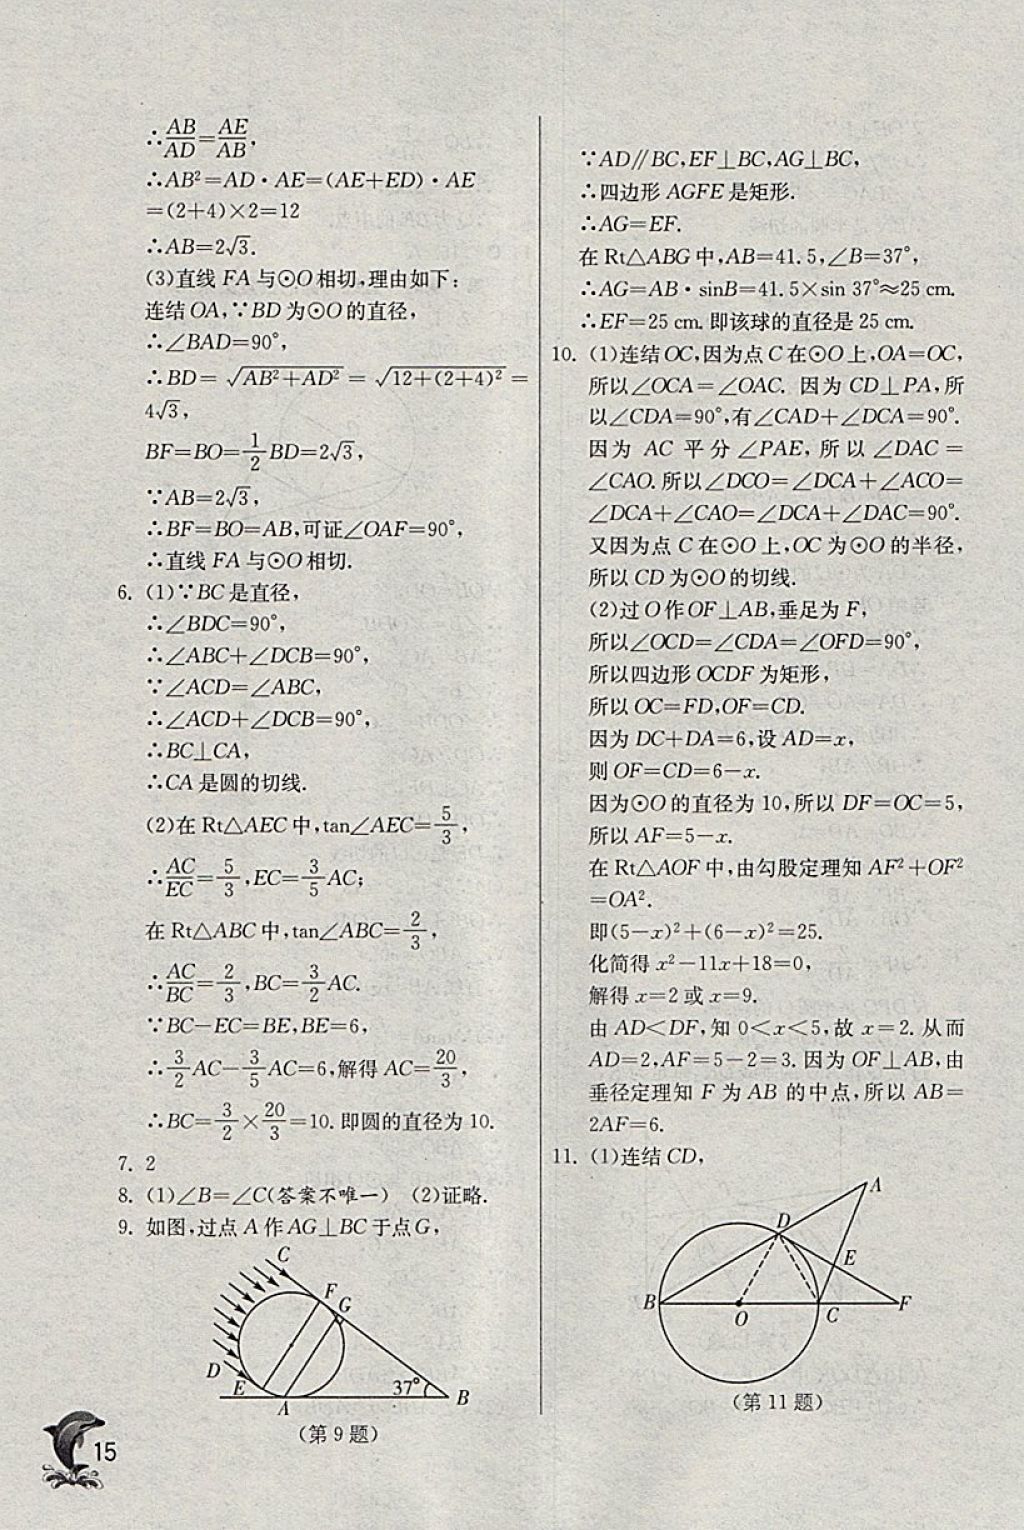 ∴AB/AD=AE/AB,
∴AB²=AD·AE=(AE+ED)·AE
=(2+4)×2=12
∴AB=2√3.
(3)直线 FA 与⊙O 相切,理由如下:
连结 OA,∵BD 为⊙O 的直径,
∴∠BAD=90°,
∴BD=√(AB²+AD²)=√(12+(2+4)²)=
4√3,
BF=BO=1/2BD=2√3,
∵AB=2√3,
∴BF=BO=AB,可证∠OAF=90°,
∴直线 FA 与⊙O 相切.
6. (1)∵BC 是直径,
∴∠BDC=90°,
∴∠ABC+∠DCB=90°,
∵∠ACD=∠ABC,
∴∠ACD+∠DCB=90°,
∴BC⊥CA,
∴CA 是圆的切线.
(2)在 Rt△AEC 中,tan∠AEC=5/3,
∴AC/EC=5/3,EC=3/5AC;
在 Rt△ABC 中,tan∠ABC=2/3,
∴AC/BC=2/3,BC=3/2AC.
∵BC−EC=BE,BE=6,
∴3/2AC−3/5AC=6,解得 AC=20/3,
∴BC=3/2×20/3=10.即圆的直径为 10.
7. 2
8. (1)∠B=∠C(答案不唯一) (2)证略.
9. 如图,过点 A 作 AG⊥BC 于点 G,
C
F
G
D
E
37°
B
A
(第 9 题)
15
∵AD∥BC,EF⊥BC,AG⊥BC,
∴四边形 AGFE 是矩形.
∴AG=EF.
在 Rt△ABG 中,AB=41.5,∠B=37°,
∴AG=AB·sinB=41.5×sin 37°≈25 cm.
∴EF=25 cm.即该球的直径是 25 cm.
10. (1)连结 OC,因为点 C 在⊙O 上,OA=OC,
所以∠OCA=∠OAC. 因为 CD⊥PA,所
以∠CDA=90°,有∠CAD+∠DCA=90°.
因为 AC 平分∠PAE,所以∠DAC=
∠CAO.所以∠DCO=∠DCA+∠ACO=
∠DCA+∠CAO=∠DCA+∠DAC=90°.
又因为点 C 在⊙O 上,OC 为⊙O 的半径,
所以 CD 为⊙O 的切线.
(2)过 O 作 OF⊥AB,垂足为 F,
所以∠OCD=∠CDA=∠OFD=90°,
所以四边形 OCDF 为矩形,
所以 OC=FD,OF=CD.
因为 DC+DA=6,设 AD=x,
则 OF=CD=6−x.
因为⊙O 的直径为 10,所以 DF=OC=5,
所以 AF=5−x.
在 Rt△AOF 中,由勾股定理知 AF²+OF²
=OA².
即(5−x)²+(6−x)²=25.
化简得 x²−11x+18=0,
解得 x=2 或 x=9.
由 AD<DF,知 0<x<5,故 x=2.从而
AD=2,AF=5−2=3.因为 OF⊥AB,由
垂径定理知 F 为 AB 的中点,所以 AB=
2AF=6.
11. (1)连结 CD,
A
D
E
B
O
C
F
(第 11 题)